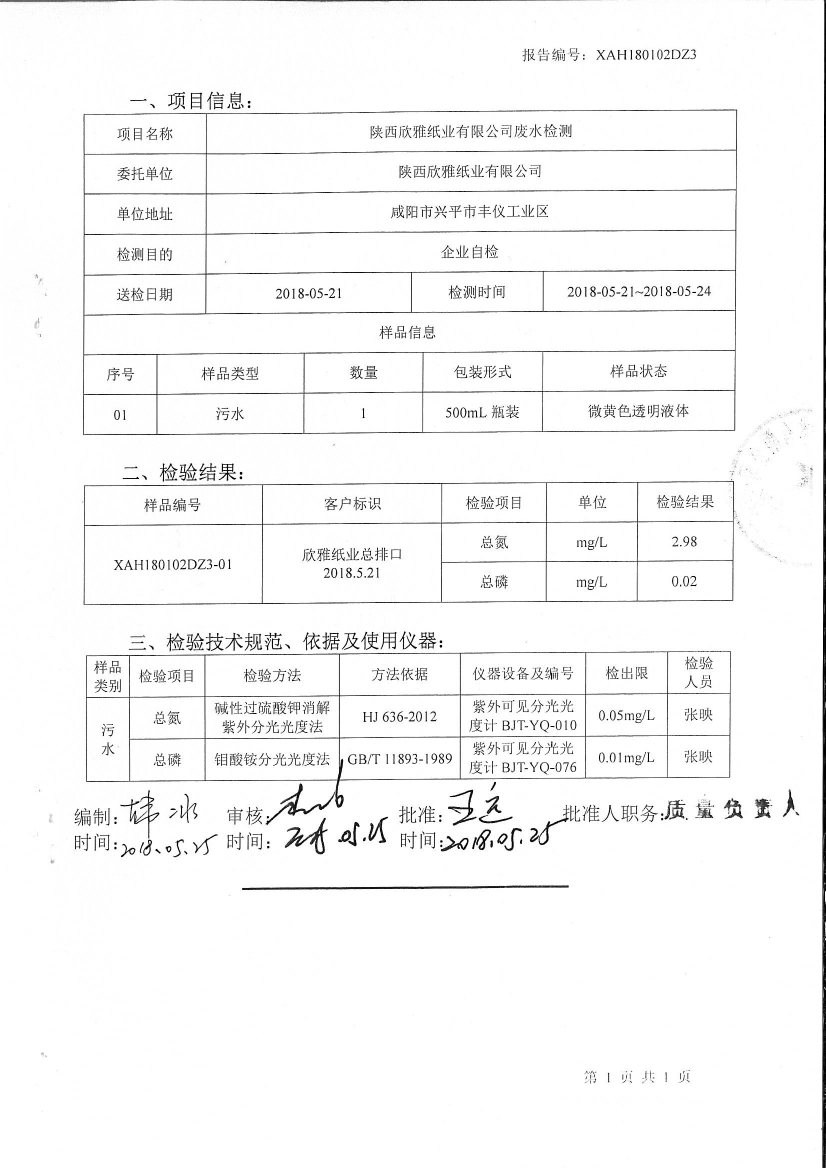 报告编号：XAH180102DZ3
一、项目信息：
项目名称 陕西欣雅纸业有限公司废水检测
委托单位 陕西欣雅纸业有限公司
单位地址 咸阳市兴平市丰仪工业区
检测目的 企业自检
送检日期 2018-05-21 检测时间 2018-05-21~2018-05-24
样品信息
序号 样品类型 数量 包装形式 样品状态
01 污水 1 500mL 瓶装 微黄色透明液体
二、检验结果：
样品编号 客户标识 检验项目 单位 检验结果
XAH180102DZ3-01 欣雅纸业总排口
2018.5.21
总氮 mg/L 2.98
总磷 mg/L 0.02
三、检验技术规范、依据及使用仪器：
样品
类别 检验项目 检验方法 方法依据 仪器设备及编号 检出限 检验
人员
污
水
总氮 碱性过硫酸钾消解
紫外分光光度法 HJ 636-2012 紫外可见分光光
度计 BJT-YQ-010 0.05mg/L 张映
总磷 钼酸铵分光光度法 GB/T 11893-1989 紫外可见分光光
度计 BJT-YQ-076 0.01mg/L 张映
编制: 审核: 批准: 批准人职务: 质量负责人
时间: 2018.05.25 时间: 05.25 时间: 2018.05.25
第 1 页 共 1 页